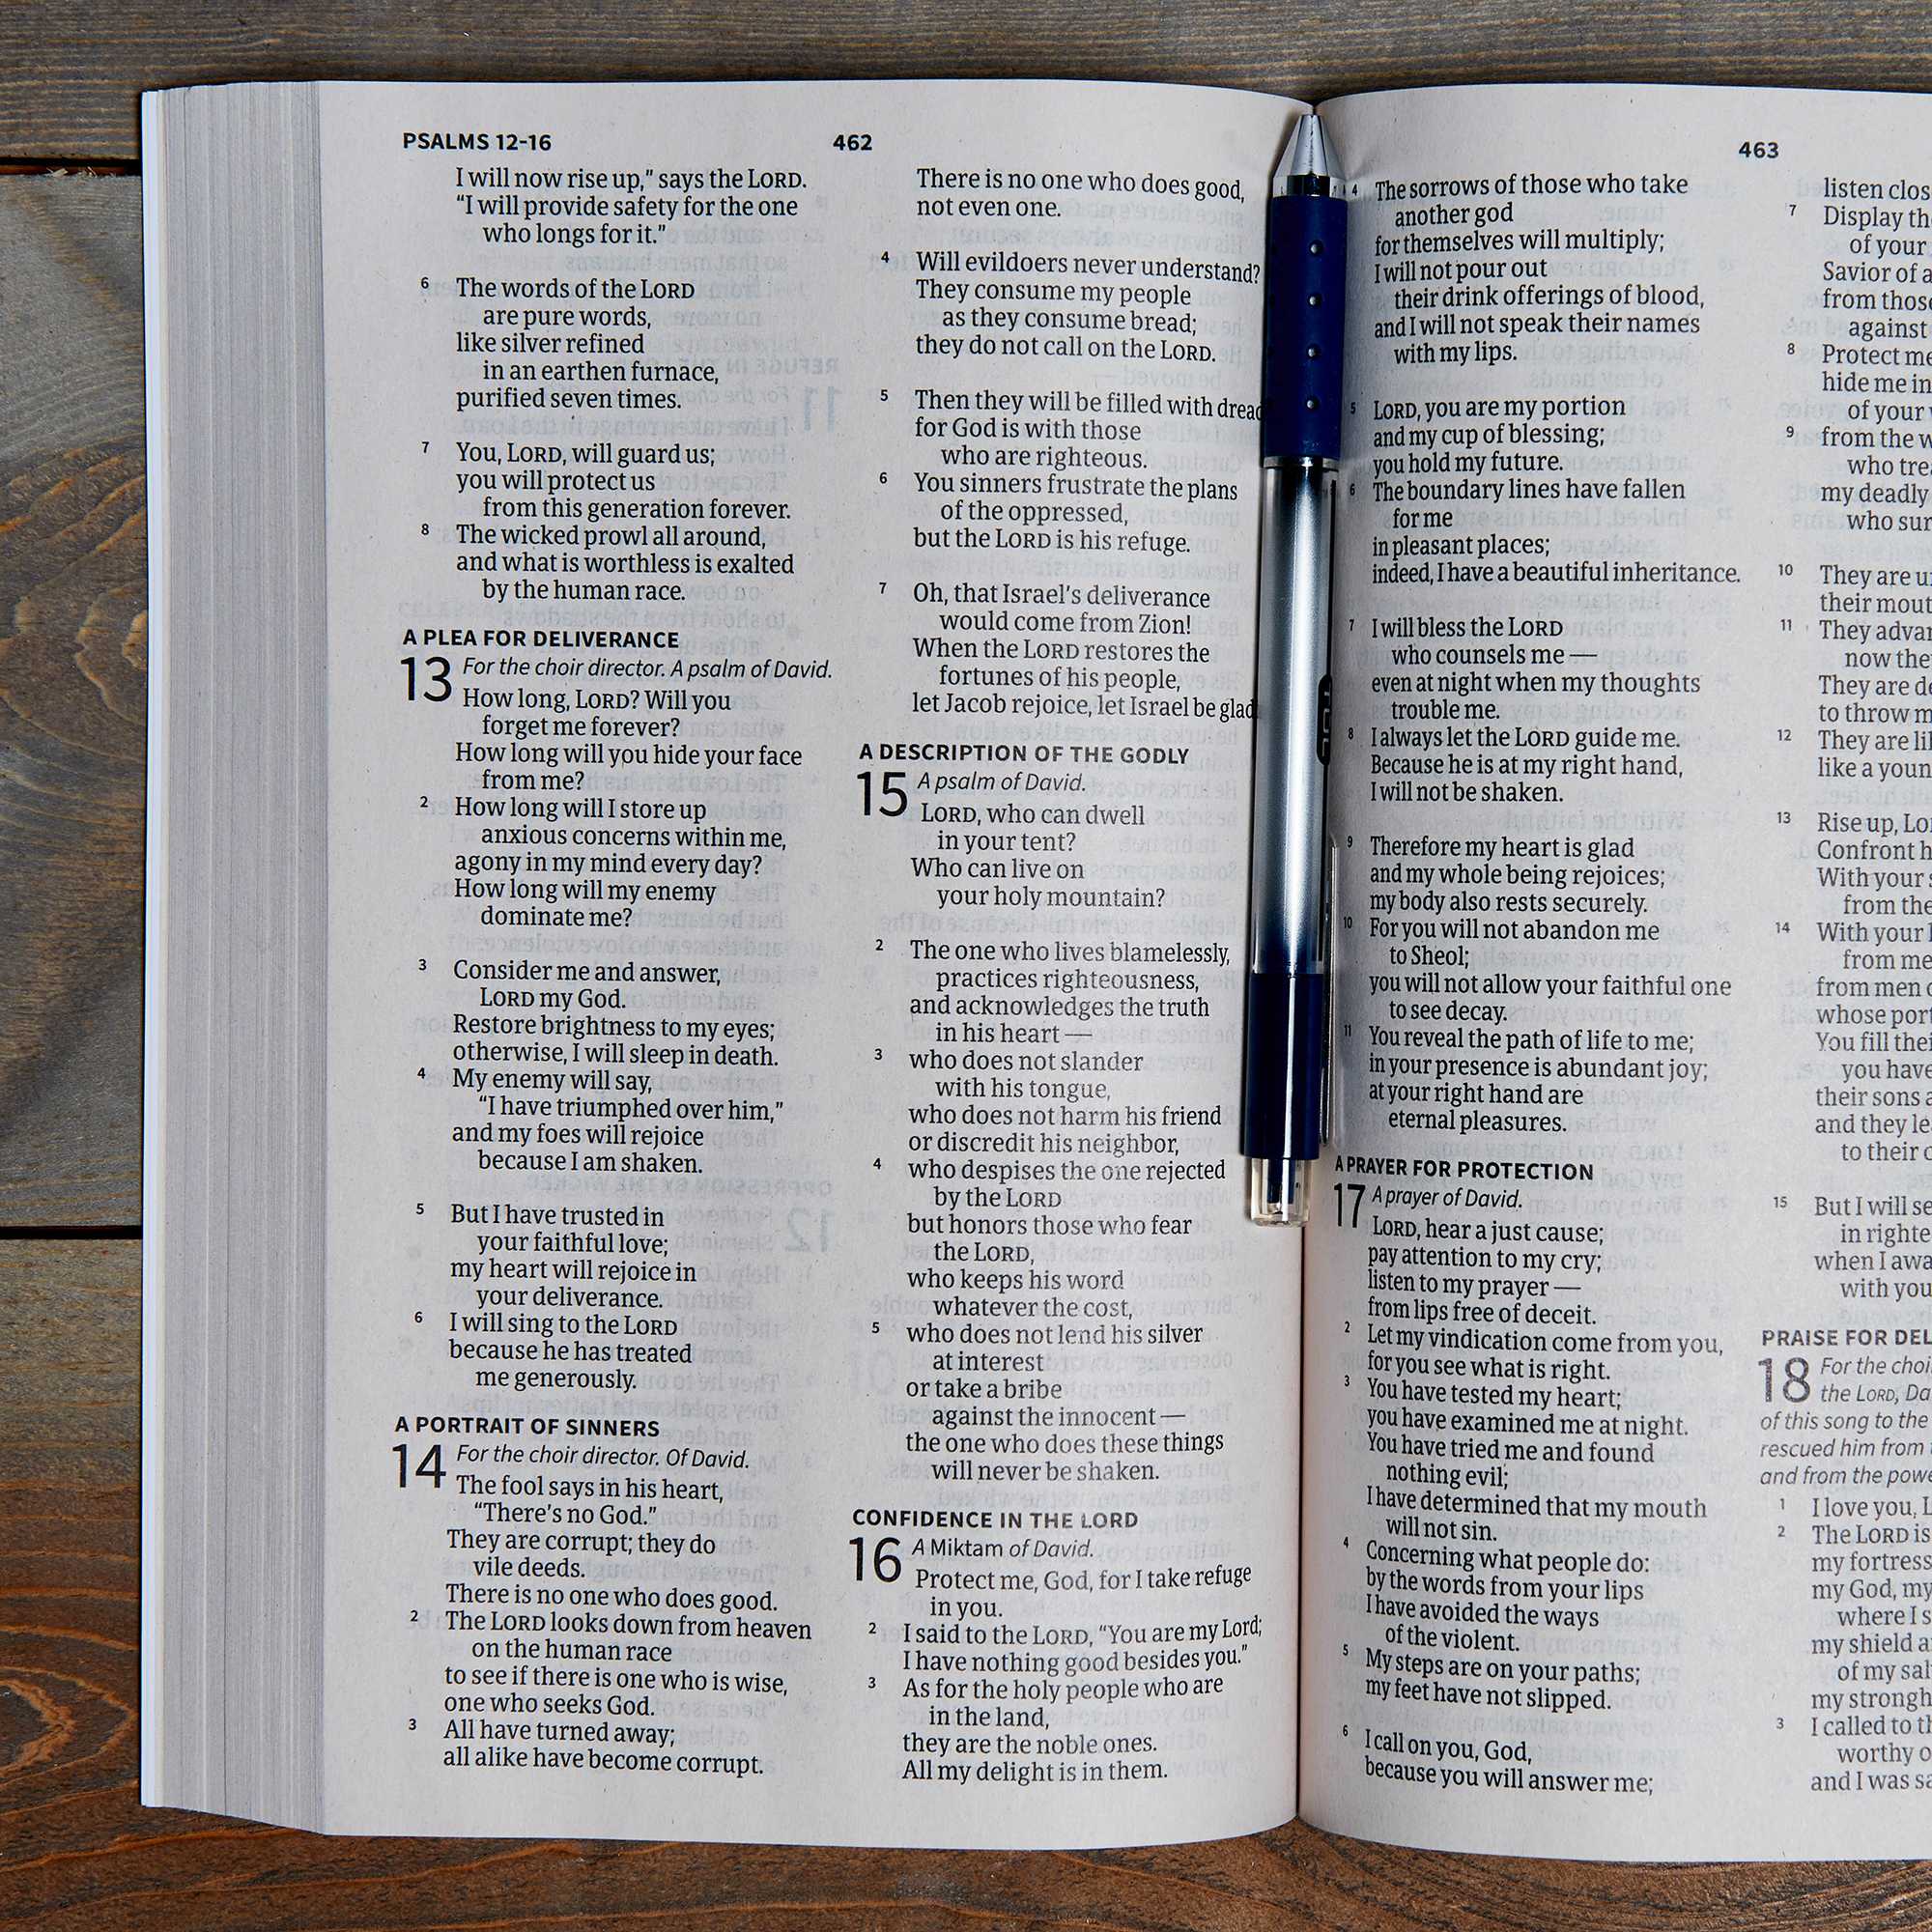 PSALMS 12-16
462
I will now rise up,” says the LORD.
“I will provide safety for the one
who longs for it.”
6 The words of the LORD
are pure words,
like silver refined
in an earthen furnace,
purified seven times.
7 You, LORD, will guard us;
you will protect us
from this generation forever.
8 The wicked prowl all around,
and what is worthless is exalted
by the human race.
A PLEA FOR DELIVERANCE
13 For the choir director. A psalm of David.
How long, LORD? Will you
forget me forever?
How long will you hide your face
from me?
2 How long will I store up
anxious concerns within me,
agony in my mind every day?
How long will my enemy
dominate me?
3 Consider me and answer,
LORD my God.
Restore brightness to my eyes;
otherwise, I will sleep in death.
4 My enemy will say,
“I have triumphed over him,”
and my foes will rejoice
because I am shaken.
5 But I have trusted in
your faithful love;
my heart will rejoice in
your deliverance.
6 I will sing to the LORD
because he has treated
me generously.
A PORTRAIT OF SINNERS
14 For the choir director. Of David.
The fool says in his heart,
“There’s no God.”
They are corrupt; they do
vile deeds.
There is no one who does good.
2 The LORD looks down from heaven
on the human race
to see if there is one who is wise,
one who seeks God.
3 All have turned away;
all alike have become corrupt.
There is no one who does good,
not even one.
4 Will evildoers never understand?
They consume my people
as they consume bread;
they do not call on the LORD.
5 Then they will be filled with dread
for God is with those
who are righteous.
6 You sinners frustrate the plans
of the oppressed,
but the LORD is his refuge.
7 Oh, that Israel’s deliverance
would come from Zion!
When the LORD restores the
fortunes of his people,
let Jacob rejoice, let Israel be glad
A DESCRIPTION OF THE GODLY
15 A psalm of David.
LORD, who can dwell
in your tent?
Who can live on
your holy mountain?
2 The one who lives blamelessly,
practices righteousness,
and acknowledges the truth
in his heart —
3 who does not slander
with his tongue,
who does not harm his friend
or discredit his neighbor,
4 who despises the one rejected
by the LORD
but honors those who fear
the LORD,
who keeps his word
whatever the cost,
5 who does not lend his silver
at interest
or take a bribe
against the innocent —
the one who does these things
will never be shaken.
CONFIDENCE IN THE LORD
16 A Miktam of David.
Protect me, God, for I take refuge
in you.
2 I said to the LORD, “You are my Lord;
I have nothing good besides you.”
3 As for the holy people who are
in the land,
they are the noble ones.
All my delight is in them.
463
4 The sorrows of those who take
another god
for themselves will multiply;
I will not pour out
their drink offerings of blood,
and I will not speak their names
with my lips.
5 LORD, you are my portion
and my cup of blessing;
you hold my future.
6 The boundary lines have fallen
for me
in pleasant places;
indeed, I have a beautiful inheritance.
7 I will bless the LORD
who counsels me —
even at night when my thoughts
trouble me.
8 I always let the LORD guide me.
Because he is at my right hand,
I will not be shaken.
9 Therefore my heart is glad
and my whole being rejoices;
my body also rests securely.
10 For you will not abandon me
to Sheol;
you will not allow your faithful one
to see decay.
11 You reveal the path of life to me;
in your presence is abundant joy;
at your right hand are
eternal pleasures.
A PRAYER FOR PROTECTION
17 A prayer of David.
LORD, hear a just cause;
pay attention to my cry;
listen to my prayer —
from lips free of deceit.
2 Let my vindication come from you,
for you see what is right.
3 You have tested my heart;
you have examined me at night.
You have tried me and found
nothing evil;
I have determined that my mouth
will not sin.
4 Concerning what people do:
by the words from your lips
I have avoided the ways
of the violent.
5 My steps are on your paths;
my feet have not slipped.
6 I call on you, God,
because you will answer me;
listen
7 Display
of your
Savior of
from those
against
8 Protect me
hide me in
of your
9 from the
who
my deadly
who
10 They are
their
11 They
now they
They are
to throw
12 They are
like a young
13 Rise up,
Confront
With your
from the
14 With your
from me
from men
whose
You fill their
you have
their sons
and they
to their
15 But I will
in
when I
with you
PRAISE FOR
18 For the
the LORD,
of this song to the
rescued him from
and from the
1 I love you,
2 The LORD is
my fortress
my God, my
where I
my shield
of my
my
3 I called to
worthy
and I was